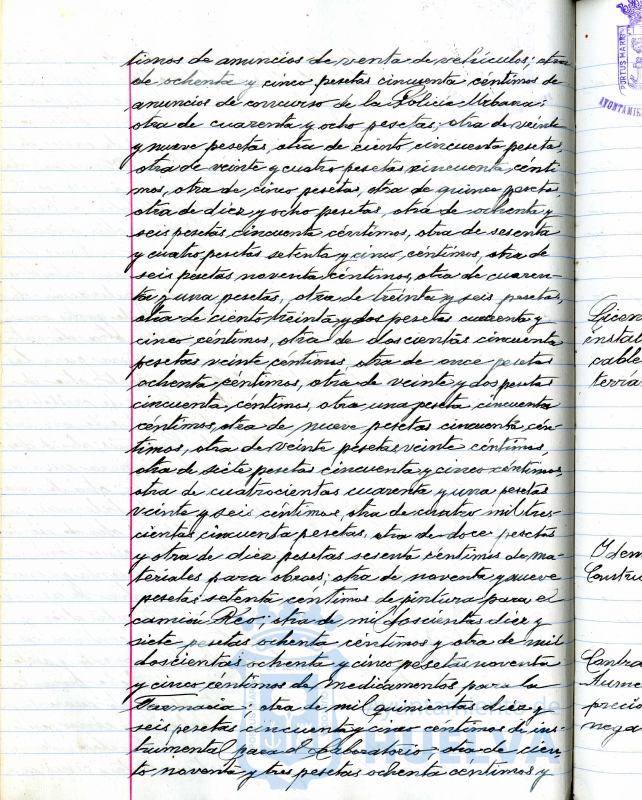 timos de anuncios de venta de vehículos; otra
de ochenta y cinco pesetas cincuenta céntimos de
anuncios de concurso de la Policía Urbana;
otra de cuarenta y ocho pesetas, otra de veinte
y nueve pesetas, otra de ciento cincuenta pesetas,
otra de veinte y cuatro pesetas cincuenta cénti
mos, otra de cinco pesetas, otra de quince pesetas,
otra de diez y ocho pesetas, otra de ochenta y
seis pesetas cincuenta céntimos, otra de sesenta
y cuatro pesetas setenta y cinco céntimos, otra de
seis pesetas noventa céntimos, otra de cuaren-
ta y una pesetas, otra de treinta y seis pesetas,
otra de ciento treinta y dos pesetas cuarenta y
cinco céntimos, otra de doscientas cincuenta
pesetas veinte céntimos, otra de once pesetas
ochenta céntimos, otra de veinte y dos pesetas
cincuenta céntimos, otra una peseta cincuenta
céntimos, otra de nueve pesetas cincuenta cén-
timos, otra de veinte pesetas veinte céntimos,
otra de siete pesetas cincuenta y cinco céntimos,
otra de cuatrocientas cuarenta y una pesetas
veinte y seis céntimos, otra de cuatro mil tres-
cientas cincuenta pesetas, otra de doce pesetas
y otra de diez pesetas sesenta céntimos de ma-
teriales para obras; otra de noventa y nueve
pesetas setenta céntimos de pintura para el
camión Reo; otra de mil doscientas diez y
siete pesetas ochenta céntimos y otra de mil
doscientas ochenta y cinco pesetas noventa
y cinco céntimos de medicamentos para la
Farmacia; otra de mil quinientas diez y
seis pesetas cincuenta y céntimos de ins-
trumental para el Laboratorio; otra de cien-
to noventa y tres pesetas ochenta céntimos y
Ayuntamiento de
HUELVA
PORTUS MARIS
AYUNTAMIE
Licen
instal
cable
terrá
Idem
Constru
Contra
Aume
precio
nega